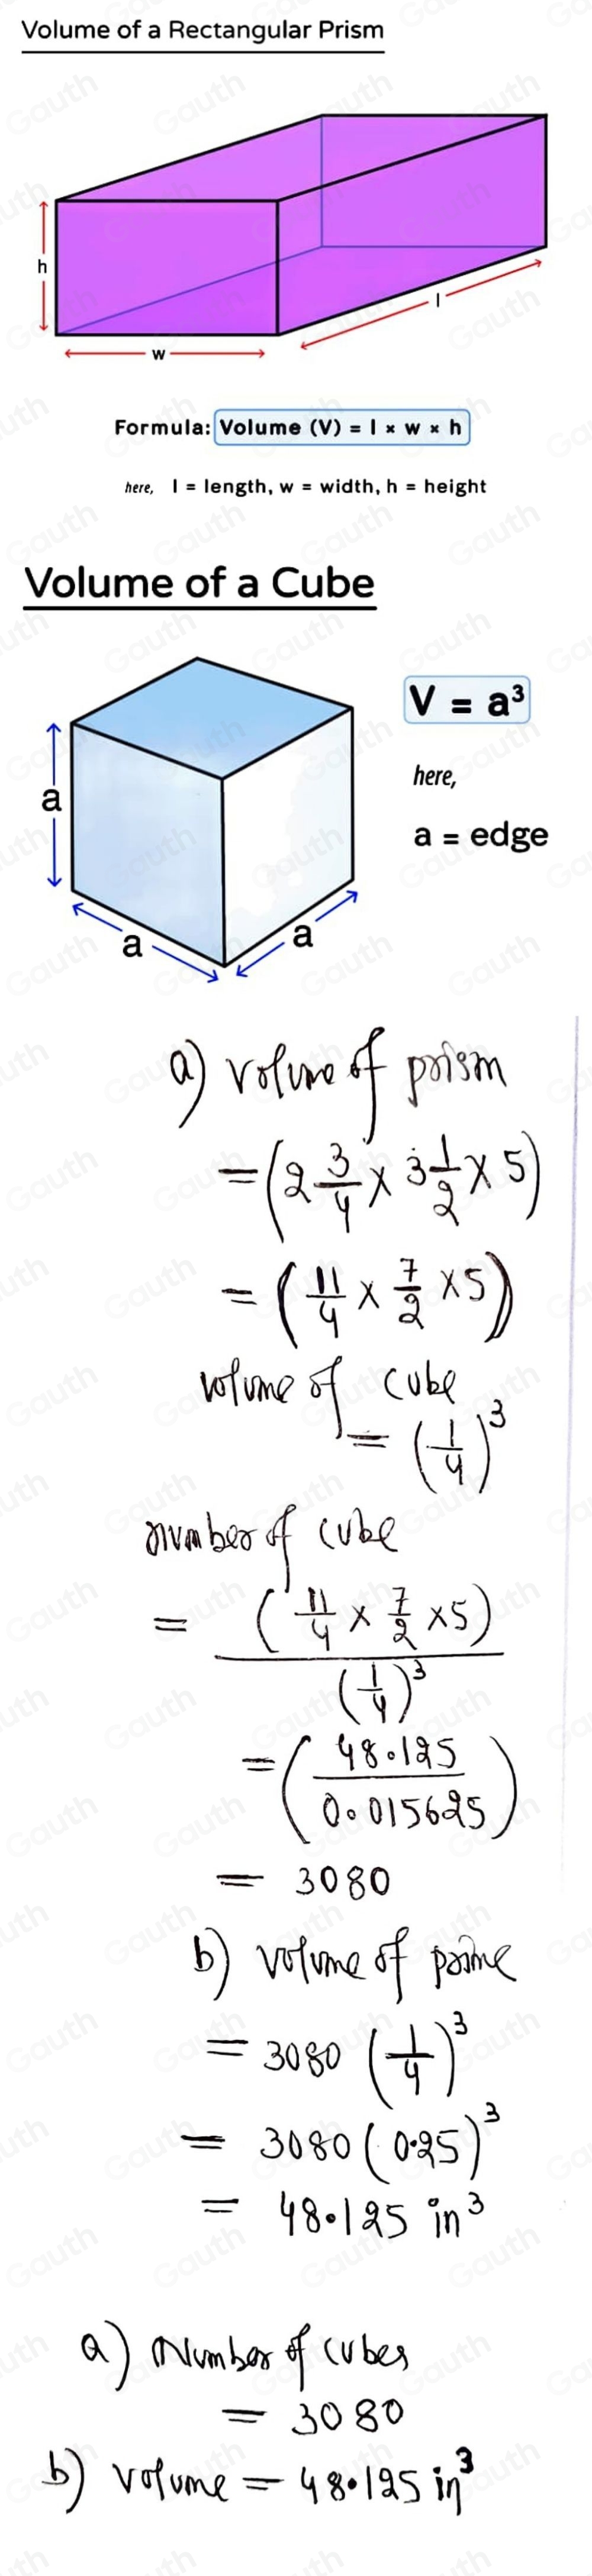 Volume of a Rectangular Prism
h
w
l
Formula: Volume (V) = l × w × h
here, l = length, w = width, h = height
Volume of a Cube
V = a³
here,
a = edge
a
a
a
a) volume of prism
= (2 3/4 × 3 1/2 × 5)
= (11/4 × 7/2 × 5)
volume of cube
= (1/4)³
number of cube
= (11/4 × 7/2 × 5) / (1/4)³
= (48.125 / 0.015625)
= 3080
b) volume of prime
= 3080 (1/4)³
= 3080 (0.25)³
= 48.125 in³
a) Number of cubes
= 3080
b) volume = 48.125 in³
Gauth